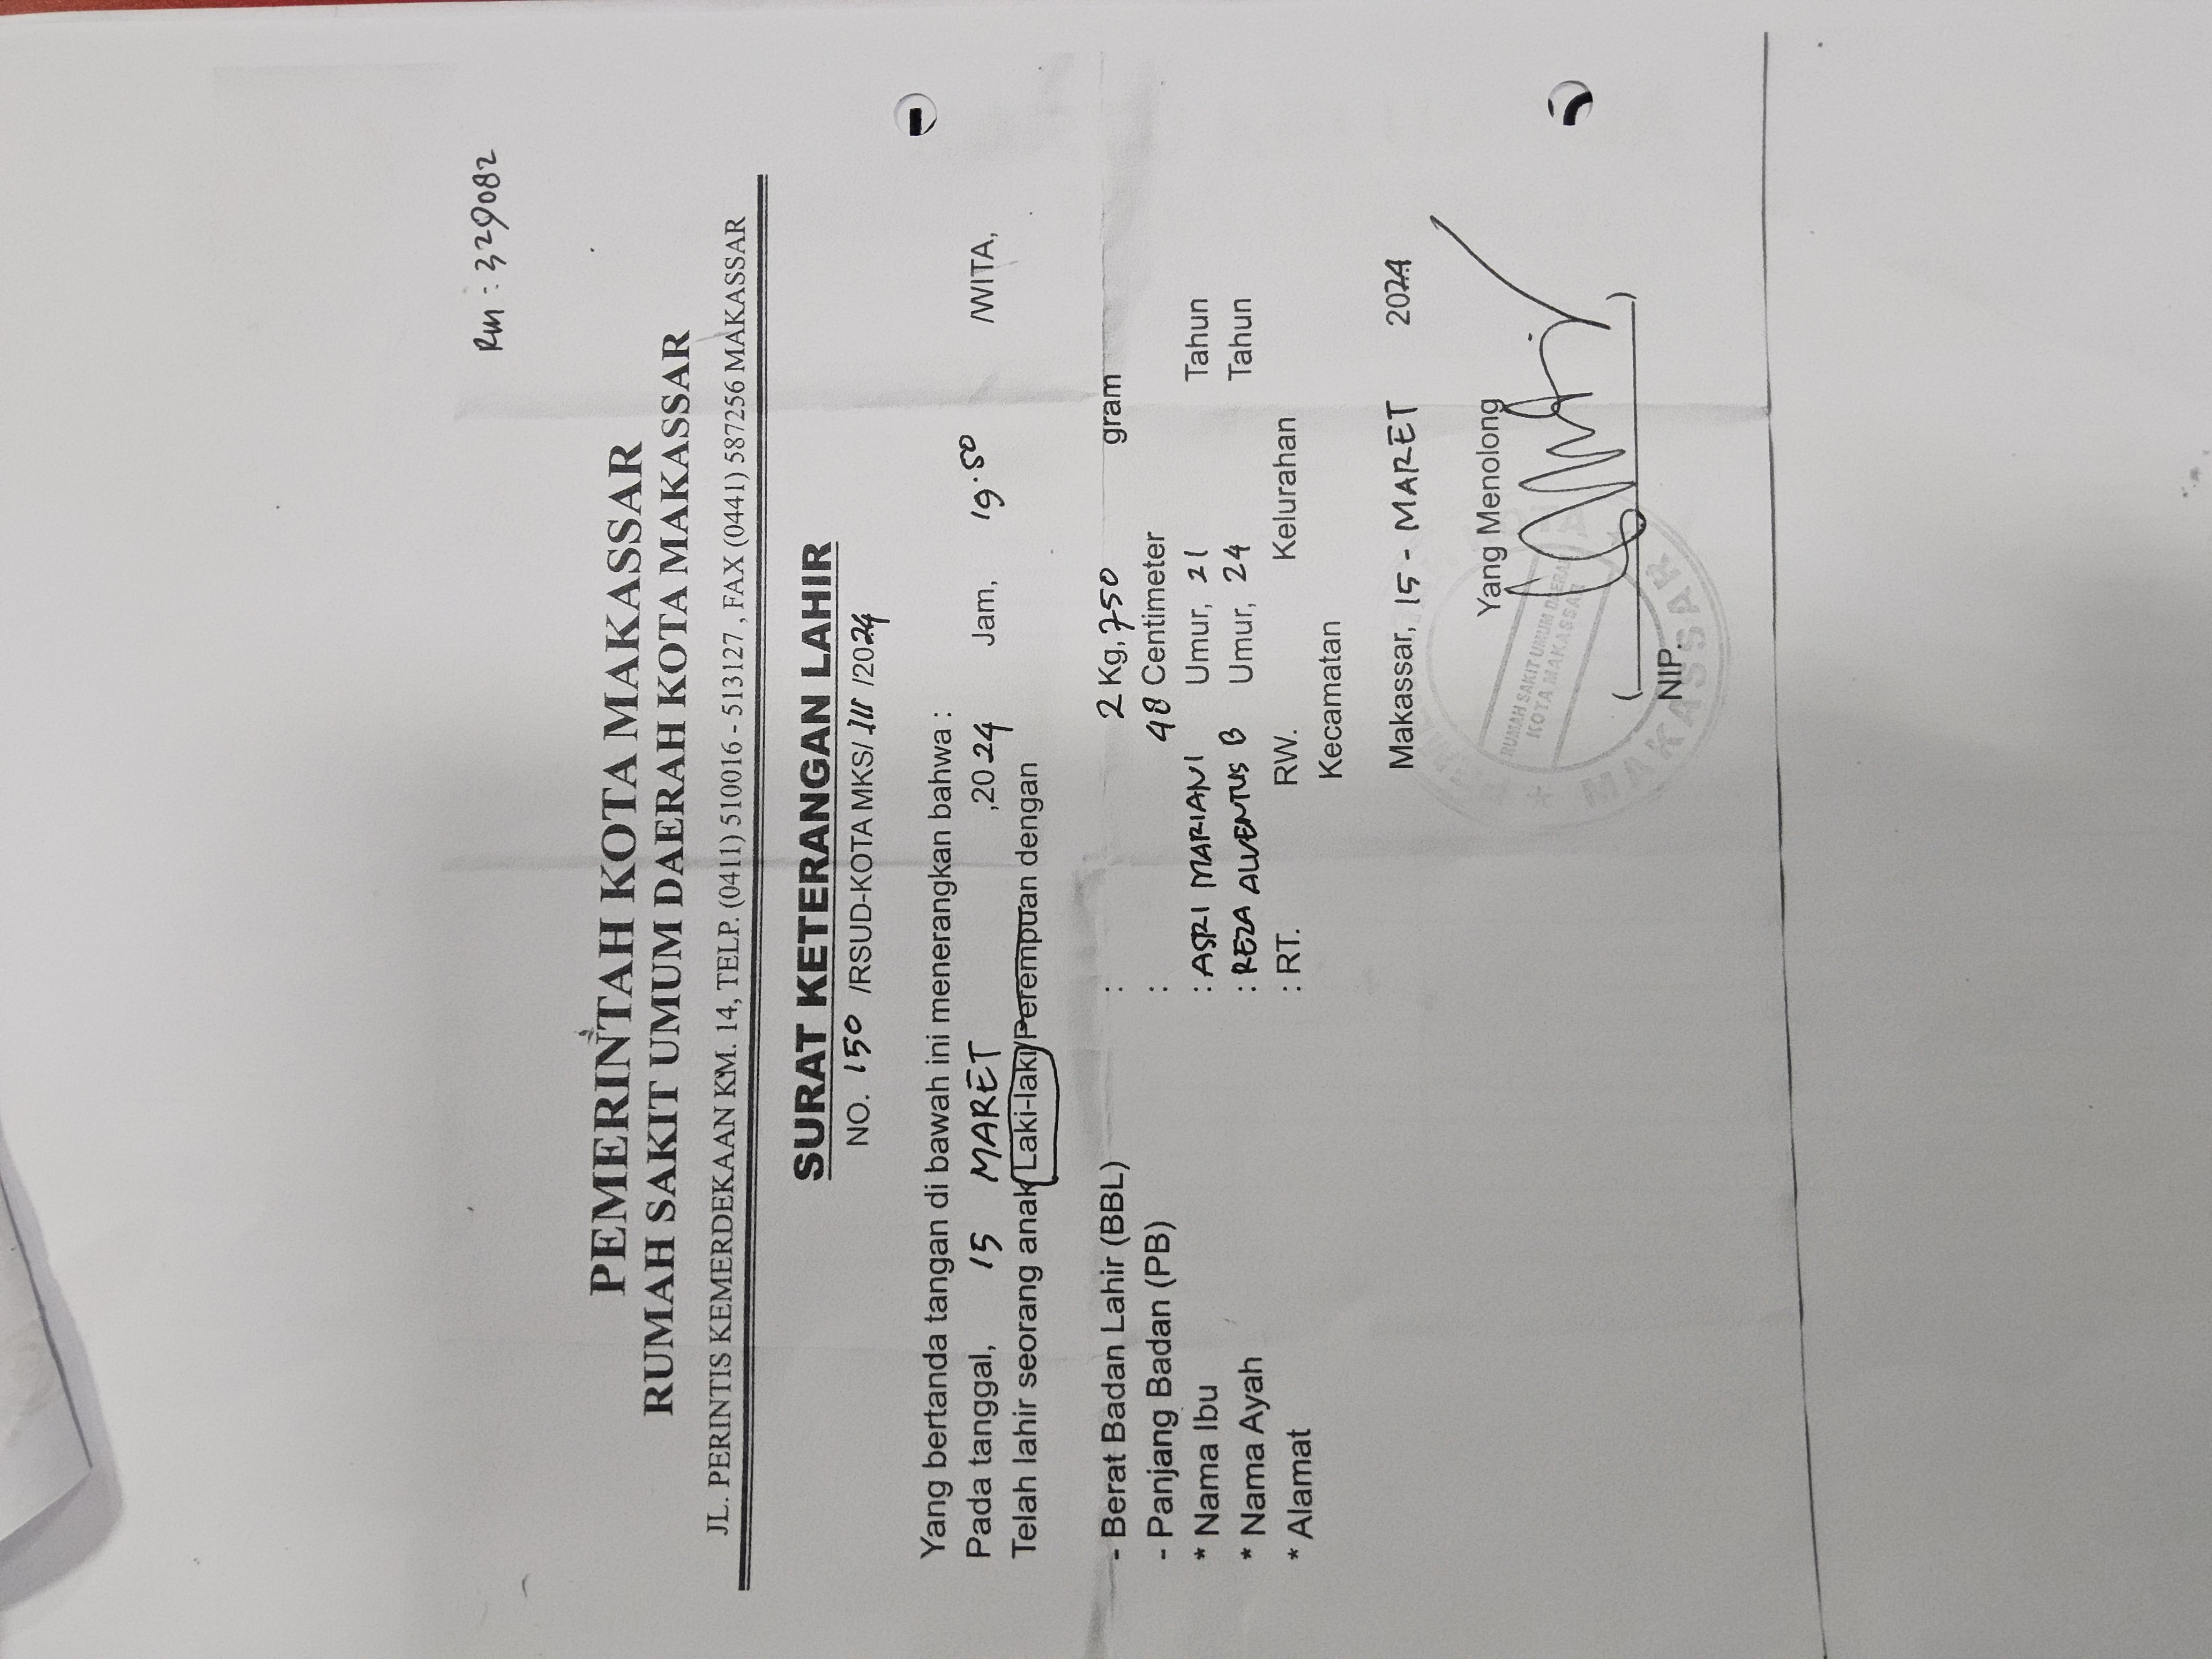 Rm : 329082
PEMERINTAH KOTA MAKASSAR
RUMAH SAKIT UMUM DAERAH KOTA MAKASSAR
JL. PERINTIS KEMERDEKAAN KM. 14, TELP. (0411) 510016 - 513127 , FAX (0441) 587256 MAKASSAR
SURAT KETERANGAN LAHIR
NO. 150 /RSUD-KOTA MKS/ III /2024
Yang bertanda tangan di bawah ini menerangkan bahwa :
Pada tanggal, 15 MARET ,2024 Jam, 19.50 /WITA,
Telah lahir seorang anak Laki-laki/Perempuan dengan
- Berat Badan Lahir (BBL) : 2 Kg, 750 gram
- Panjang Badan (PB) : 48 Centimeter
* Nama Ibu : ASRI MARIANI Umur, 21 Tahun
* Nama Ayah : REZA ALVENTUS B Umur, 24 Tahun
* Alamat : RT. RW. Kelurahan
Kecamatan
Makassar, 15 - MARET 2024
Yang Menolong
RUMAH SAKIT UMUM DAERAH
KOTA MAKASSAR
MAKASSAR
( )
NIP.